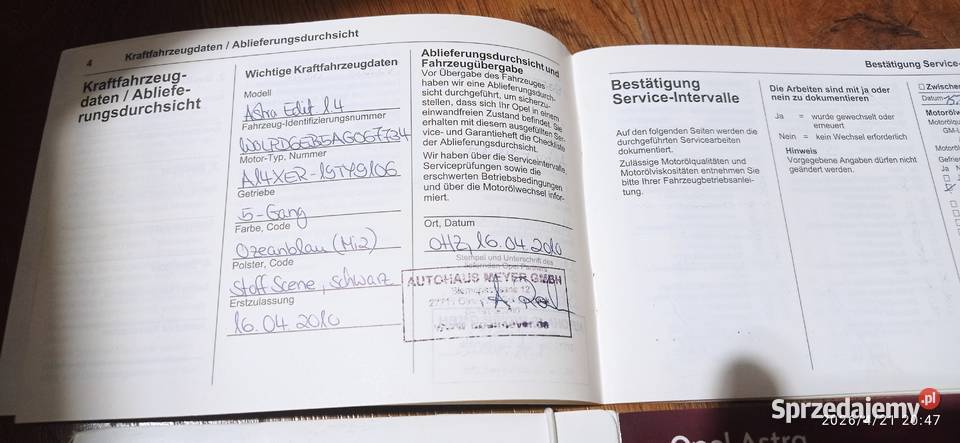 4
Kraftfahrzeugdaten / Ablieferungsdurchsicht
Kraftfahrzeug-
daten / Abliefe-
rungsdurchsicht
Wichtige Kraftfahrzeugdaten
Modell
Astra Edit 1.4
Fahrzeug-Identifizierungsnummer
W0LPD6EB5AG067724
Motor-Typ, Nummer
A14XER-19TY9106
Getriebe
5-Gang
Farbe, Code
Ozeanblau (Mi2)
Polster, Code
Stoff Scene, schwarz
Erstzulassung
16.04.2010
Ablieferungsdurchsicht und
Fahrzeugübergabe
Vor Übergabe des Fahrzeuges
haben wir eine Ablieferungsdurch-
sicht durchgeführt, um sicherzu-
stellen, dass sich Ihr Opel in einem
einwandfreien Zustand befindet. Sie
erhalten mit diesem ausgefüllten Ser-
vice- und Garantieheft die Checkliste
der Ablieferungsdurchsicht.
Wir haben über die Serviceintervalle,
Serviceprüfungen sowie die
erschwerten Betriebsbedingungen
und über die Motorölwechsel infor-
miert.
Ort, Datum
OHZ, 16.04.2010
Stempel und Unterschrift des
AUTOHAUS MEYER GMBH
Bestätigung Service-
Bestätigung
Service-Intervalle
Auf den folgenden Seiten werden die
durchgeführten Servicearbeiten
dokumentiert.
Zulässige Motorölqualitäten und
Motorölviskositäten entnehmen Sie
bitte Ihrer Fahrzeugbetriebsanlei-
tung.
Die Arbeiten sind mit ja oder
nein zu dokumentieren
Ja = wurde gewechselt oder
erneuert
Nein = kein Wechsel erforderlich
Hinweis
Vorgegebene Angaben dürfen nicht
geändert werden.
Zwischen
Datum
Motorölqu
GM-L
Motoröl
Gefrier
Ja N
Opel Astra
Sprzedajemy.pl
2026/4/21 20:47